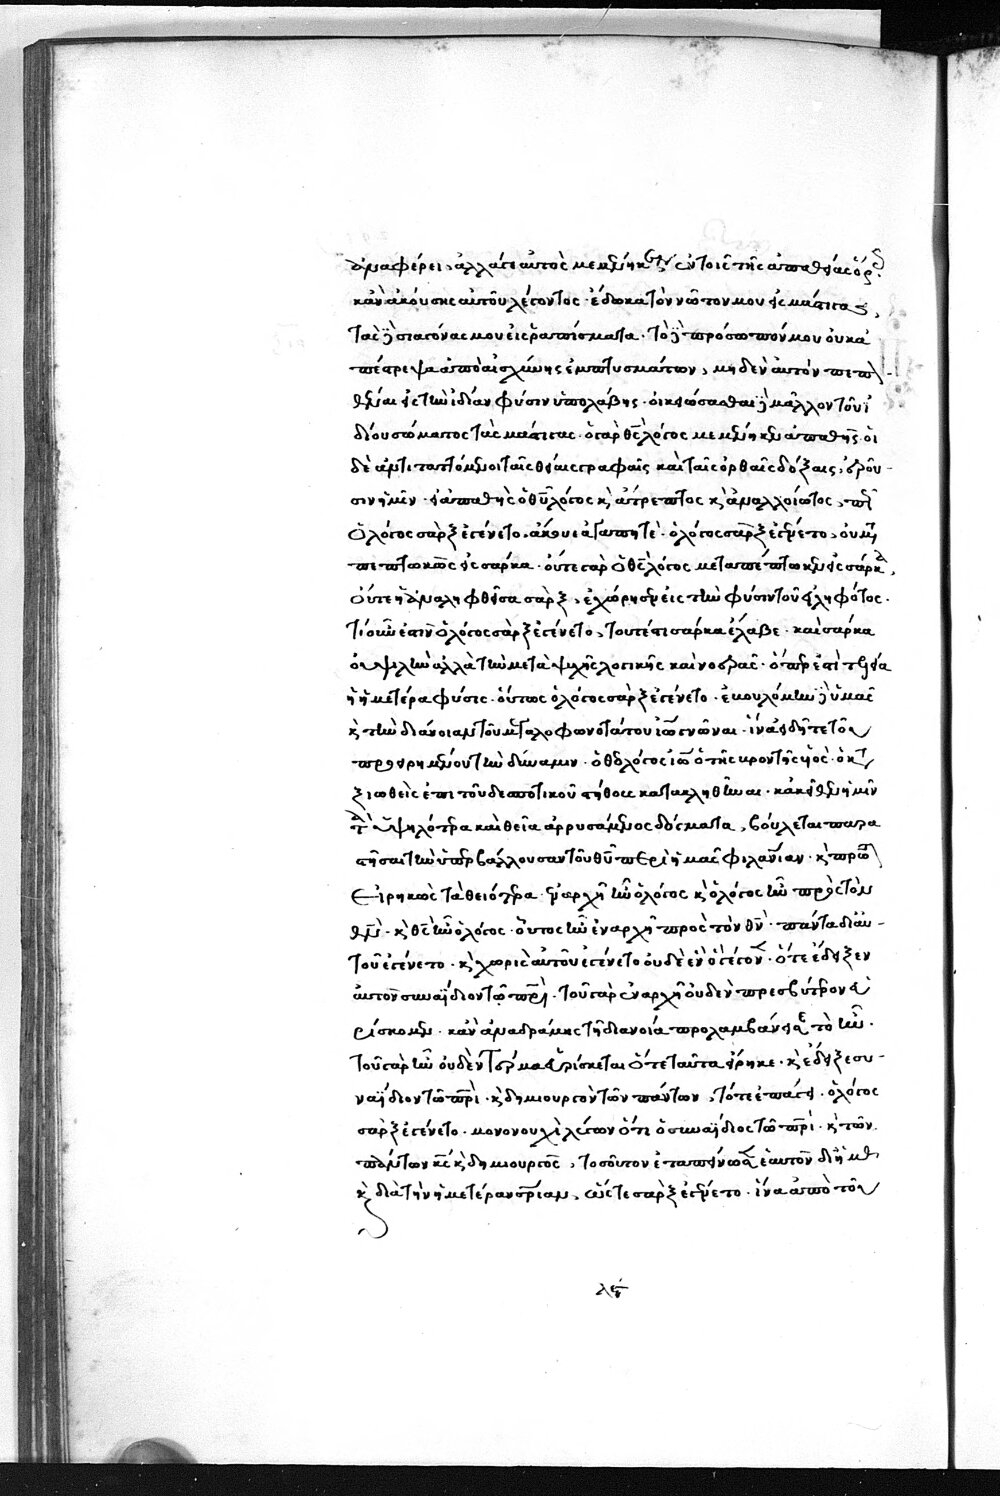 ἀναφέρει, ἀλλά τε αὐτὸς μεμένηκεν ἐν τοῖς τῆς ἀπαθείας ὅροις.
κἂν ἀκούσης αὐτοῦ λέγοντος· ἔδωκα τὸν νῶτον μου εἰς μάστιγας,
τὰς δὲ σιαγόνας μου εἰς ῥαπίσματα· τὸ δὲ πρόσωπόν μου οὐκ ἀ
πέστρεψα ἀπὸ αἰσχύνης ἐμπτυσμάτων, μηδὲν αὐτὸν πεπον-
θέναι εἰς τὴν ἰδίαν φύσιν ὑπολάβης· οἰκειώσασθαι δὲ μᾶλλον τοῦ ἰ
δίου σώματος τὰς μάστιγας· ὁ γὰρ θς λόγος μεμένηκεν ἀπαθής· οἱ
δὲ ἀντιταττόμενοι ταῖς θείαις γραφαῖς καὶ ταῖς ὀρθαῖς δόξαις, ἐροῦ-
σιν ἡμῖν· εἰ ἀπαθὴς ὁ θῦ λόγος κ ἄτρεπτος κ ἀναλλοίωτος, πῶς
ὁ λόγος σὰρξ ἐγένετο. ἄκουε ἀγαπητέ· ὁ λόγος σὰρξ ἐγένετο, οὐ με
πεπτωκὼς εἰς σάρκα· οὔτε γὰρ ὁ θς λόγος μεταπέπτωκεν εἰς σάρκα,
οὔτε ἡ ἀναληφθεῖσα σὰρξ, ἐχώρησεν εἰς τὴν φύσιν τοῦ εἰληφότος.
τί οὖν ἐστὶν ὁ λόγος σὰρξ ἐγένετο, τουτέστι σάρκα ἔλαβε· καὶ σάρκα
οὐ ψιλὴν ἀλλὰ τὴν μετὰ ψυχῆς λογικῆς καὶ νοερᾶς· ὅπερ ἐστὶ τελεία
ἡ ἡμετέρα φύσις· οὕτως ὁ λόγος σὰρξ ἐγένετο· ἐβουλόμην δὲ ὑμᾶς
κ τὴν διάνοιαν τοῦ μεγαλοφωνοτάτου ἰω γνῶναι· ἵνα εἰδῆτε τοῦ
προειρημένου τὴν δύναμιν· ὁ θεολόγος ἰω ὁ τῆς βροντῆς υἱὸς· ὁ κατα
ξιωθεὶς ἐπὶ τοῦ δεσποτικοῦ στήθους κατακληθῆναι· κἀκεῖθεν ἡμῖν
τὰ ὑψηλότερα καὶ θεῖα ἀρρυσάμενος δόγματα, βούλεται παρα
στῆσαι τὴν ὑπερβάλλουσαν τοῦ θῦ περὶ ἡμᾶς φιλανίαν· κ πρῶτον
εἰρηκὼς τὰ θειότερα· ἐν ἀρχῆ ἦν ὁ λόγος κ ὁ λόγος ἦν πρὸς τὸν
θν· κ θς ἦν ὁ λόγος· οὗτος ἦν ἐν ἀρχῆ πρὸς τὸν θν· πάντα δι αὐ-
τοῦ ἐγένετο· κ χωρὶς αὐτοῦ ἐγένετο οὐδὲ ἓν ὃ γέγονεν· ὅτε ἔδειξεν
αὐτὸν συναΐδιον τῶ πρὶ· τοῦ γὰρ ἐν ἀρχῆ οὐδὲν πρεσβύτερον εὑ
ρίσκομεν· κἂν ἀναδράμης τῆ διανοία προλαμβάνει σε τὸ ἦν·
τοῦ γὰρ ἦν οὐδὲν τέρμα εὑρίσκεται ὅτε ταῦτα εἴρηκε· κ ἔδειξε συ-
ναΐδιον τῶ πρὶ· κ δημιουργὸν τῶν πάντων, τότε ἐπάγει· ὁ λόγος
σὰρξ ἐγένετο· μονονουχὶ λέγων ὅτι ὁ συναΐδιος τῶ πρὶ· κ τῶν
πάντων κς κ δημιουργὸς, τοσοῦτον ἐταπείνωσεν ἑαυτὸν δι ἡμᾶς
κ διὰ τὴν ἡμετέραν σριαν, ὥστε σὰρξ ἐγένετο· ἵνα ἀπὸ τοῦ